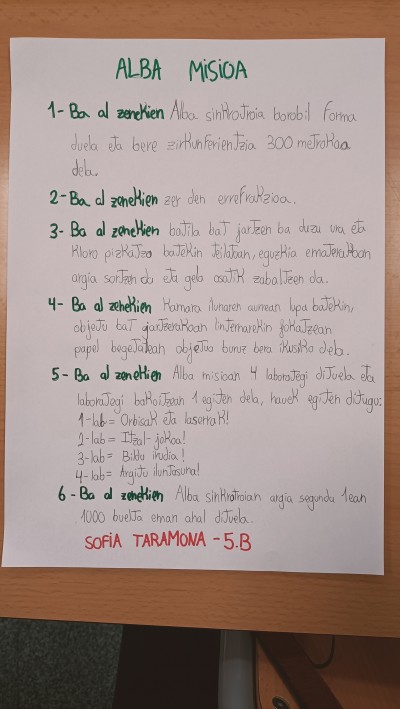 ALBA MISIOA
1- Ba al zenekien Alba sinkrotroia borobil forma
duela eta bere zirkunferientzia 300 metrokoa
dela.
2- Ba al zenekien zer den errefrakzioa.
3- Ba al zenekien batila bat jartzen ba duzu ura eta
kloro pizkatzo batekin teilaban, eguzkia ematerakoan
argia sortzen da eta gela osatik zabaltzen da.
4- Ba al zenekien Kamara ilunaren aurrean lupa batekin,
objetu bat jartzerakoan linternarekin fokatzean
papel begetalean objetua buruz bera ikusiko dela.
5- Ba al zenekien Alba misioan 4 laborategi dituela eta
laborategi bakoitzean 1 egiten dela, hauek egiten ditugu:
1-lab= Orbisak eta laserrak!
2-lab= Itzal-jokoa!
3-lab= Bildu irudia!
4-lab= Argitu iluntasuna!
6- Ba al zenekien Alba sinkrotroian argia segundu 1ean
1000 buelta eman ahal dituela.
SOFIA TARAMONA - 5.B